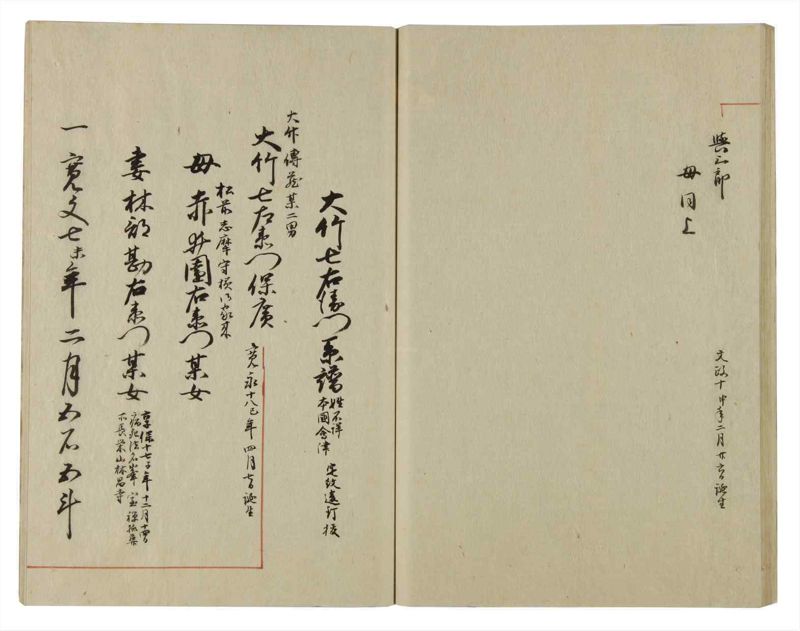 與三郎
母同上
文政十申年二月廿六日誕生
大竹七右衛門系譜
姓不詳
本國會津
大竹傳蔵某二男
大竹七右衛門保廣
寛永十八巳年四月七日誕生
松前志摩守様御家来
母赤井園右衛門某女
妻林部勘右衛門某女
享保十七子年十二月十四日
病死法名
長栄山林昌寺
一寛文七未年二月五石五斗